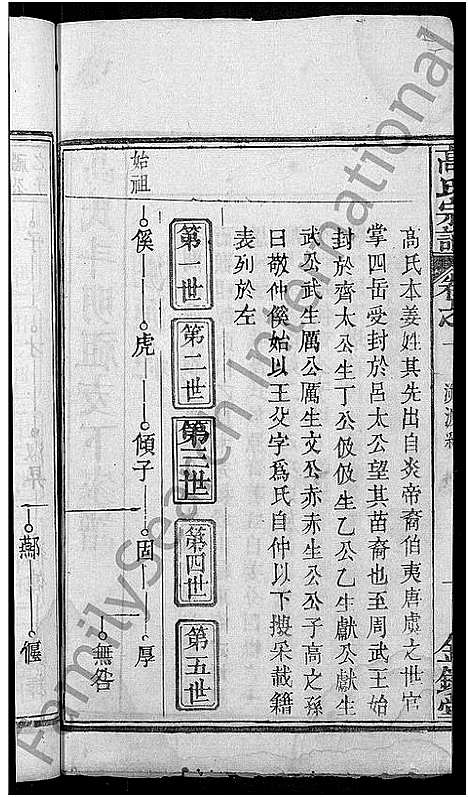 高氏宗譜
卷之一
金鑑堂
高氏本姜姓其先出自炎帝裔伯夷唐虞之世官
掌四岳受封於呂太公望其苗裔也至周武王始
封於齊太公生丁公伋伋生乙公乙生獻公獻生
武公武生厲公厲生文公赤赤生公公子高之孫
曰敬仲傒始以王父字爲氏自仲以下搜采載籍
表列於左
第一世
第二世
第三世
第四世
第五世
始祖
傒
虎
傾子
固
厚
無咎
酀
偃
FamilySearch International